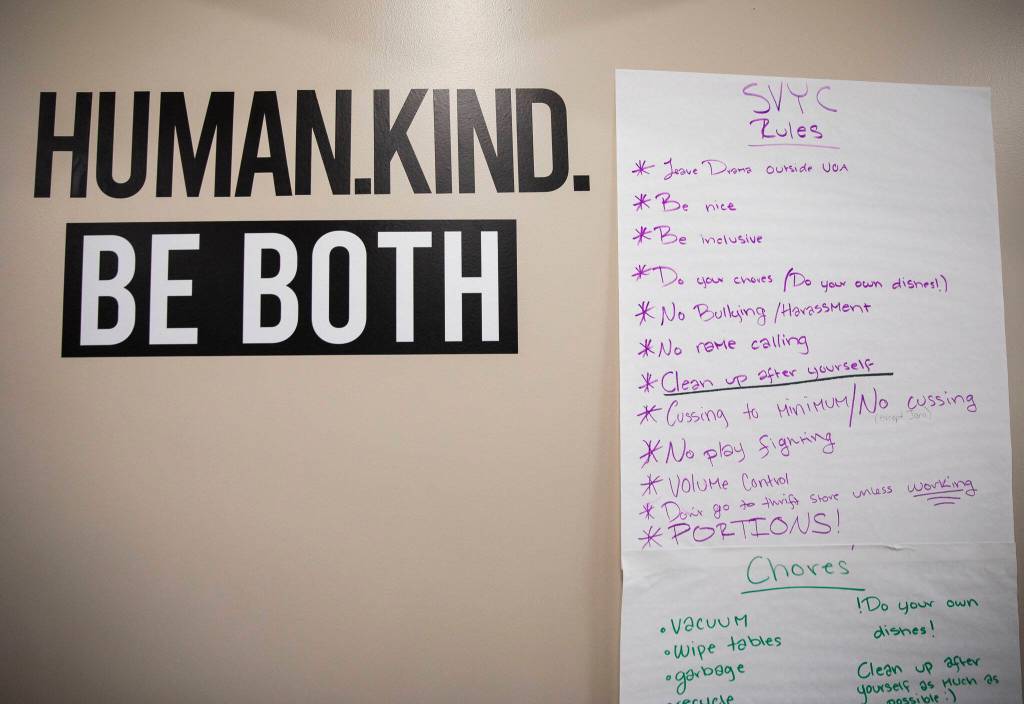 HUMAN.KIND.
BE BOTH
SVYC
Rules
* Leave Drama outside VOA
* Be nice
* Be inclusive
* Do your chores /(Do your own dishes!)
* No Bullying/Harassment
* No name calling
* Clean up after yourself
* Cussing to MINIMUM/No cussing
* No play fighting
* VOLUME Control
* Don't go to thrift store unless working
* PORTIONS!
Chores
• VACUUM
• Wipe tables
• garbage
recycle
!Do your own
dishes!
Clean up after
yourself as much as
possible :)